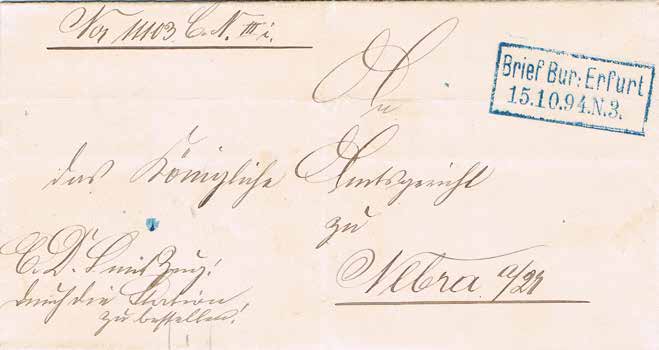 No 11103. C. N. III i.
Brief Bur: Erfurt
15.10.94.N.3.
An
das Königliche Amtsgericht
zu
Nebra a/
E. D. S. mit Zug!
durch die Station
zu bestellen!